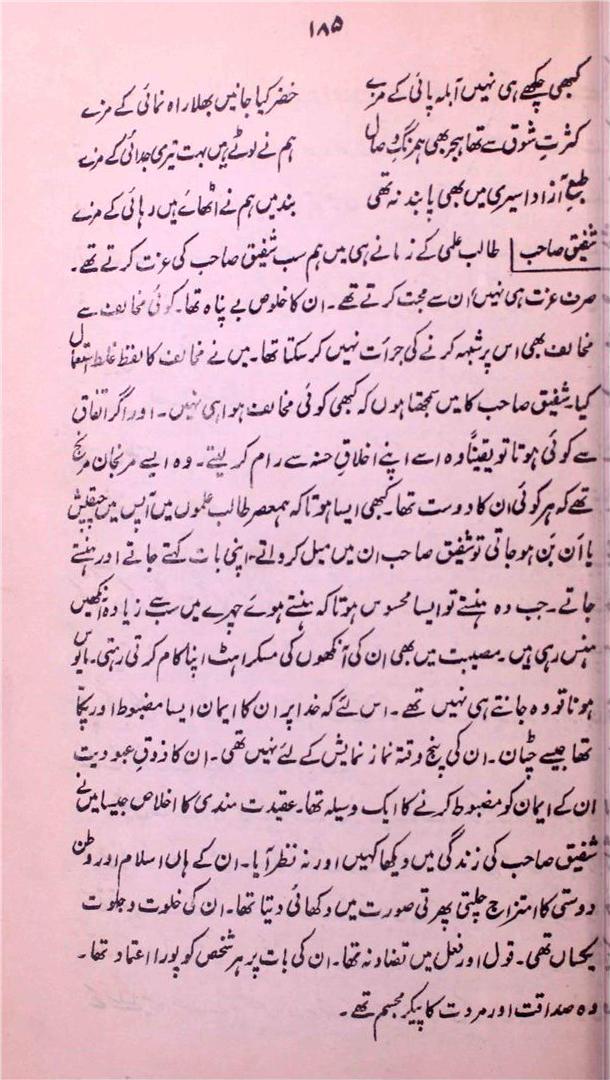 ۱۸۵
کبھی چکھے ہی نہیں آبلہ پائی کے مزے خضر کیا جانیں بھلا راہ نمائی کے مزے
کثرتِ شوق سے تھا ہجر بھی ہمرنگِ وصال ہم نے لوٹے ہیں بہت تیری جدائی کے مزے
طبعِ آزاد اسیری میں بھی پابند نہ تھی بند میں ہم نے اٹھائے ہیں رہائی کے مزے
شفیق صاحب طالب علمی کے زمانے ہی میں ہم سب شفیق صاحب کی عزت کرتے تھے۔
صرف عزت ہی نہیں اُن سے محبت کرتے تھے۔ ان کا خلوص بے پناہ تھا۔ کوئی مخالف سے
مخالف بھی اس پر شبہہ کرنے کی جرأت نہیں کر سکتا تھا۔ میں نے مخالف کا لفظ غلط استعمال
کیا۔ شفیق صاحب کا میں سمجھتا ہوں کہ کبھی کوئی مخالف ہوا ہی نہیں۔ اور اگر اتفاق
سے کوئی ہوتا تو یقیناً وہ اسے اپنے اخلاقِ حسنہ سے رام کر لیتے۔ وہ ایسے مرنجان مرنج
تھے کہ ہر کوئی ان کا دوست تھا۔ کبھی ایسا ہوتا کہ ہمعصر طالب علموں میں آپس میں چپقلش
یا اَن بَن ہو جاتی تو شفیق صاحب ان میں میل کرواتے۔ اپنی بات کہتے جاتے اور ہنستے
جاتے۔ جب وہ ہنستے تو ایسا محسوس ہوتا کہ ہنستے ہوئے چہرے میں سب سے زیادہ آنکھیں
ہنس رہی ہیں۔ مصیبت میں بھی ان کی آنکھوں کی مسکراہٹ اپنا کام کرتی رہتی۔ مایوس
ہونا تو وہ جانتے ہی نہیں تھے۔ اس لئے کہ خدا پر ان کا ایمان ایسا مضبوط اور پکّا
تھا جیسے چٹان۔ ان کی پنج وقتہ نماز نمائش کے لئے نہیں تھی۔ ان کا ذوقِ عبودیت
ان کے ایمان کو مضبوط کرنے کا ایک وسیلہ تھا۔ عقیدت مندی کا اخلاص جیسا میں نے
شفیق صاحب کی زندگی میں دیکھا کہیں اور نہ نظر آیا۔ ان کے ہاں اسلام اور وطن
دوستی کا امتزاج چلتی پھرتی صورت میں دکھائی دیتا تھا۔ ان کی خلوت و جلوت
یکساں تھی۔ قول اور فعل میں تضاد نہ تھا۔ ان کی بات پر ہر شخص کو پورا اعتماد تھا۔
وہ صداقت اور مروت کا پیکرِ مجسم تھے۔